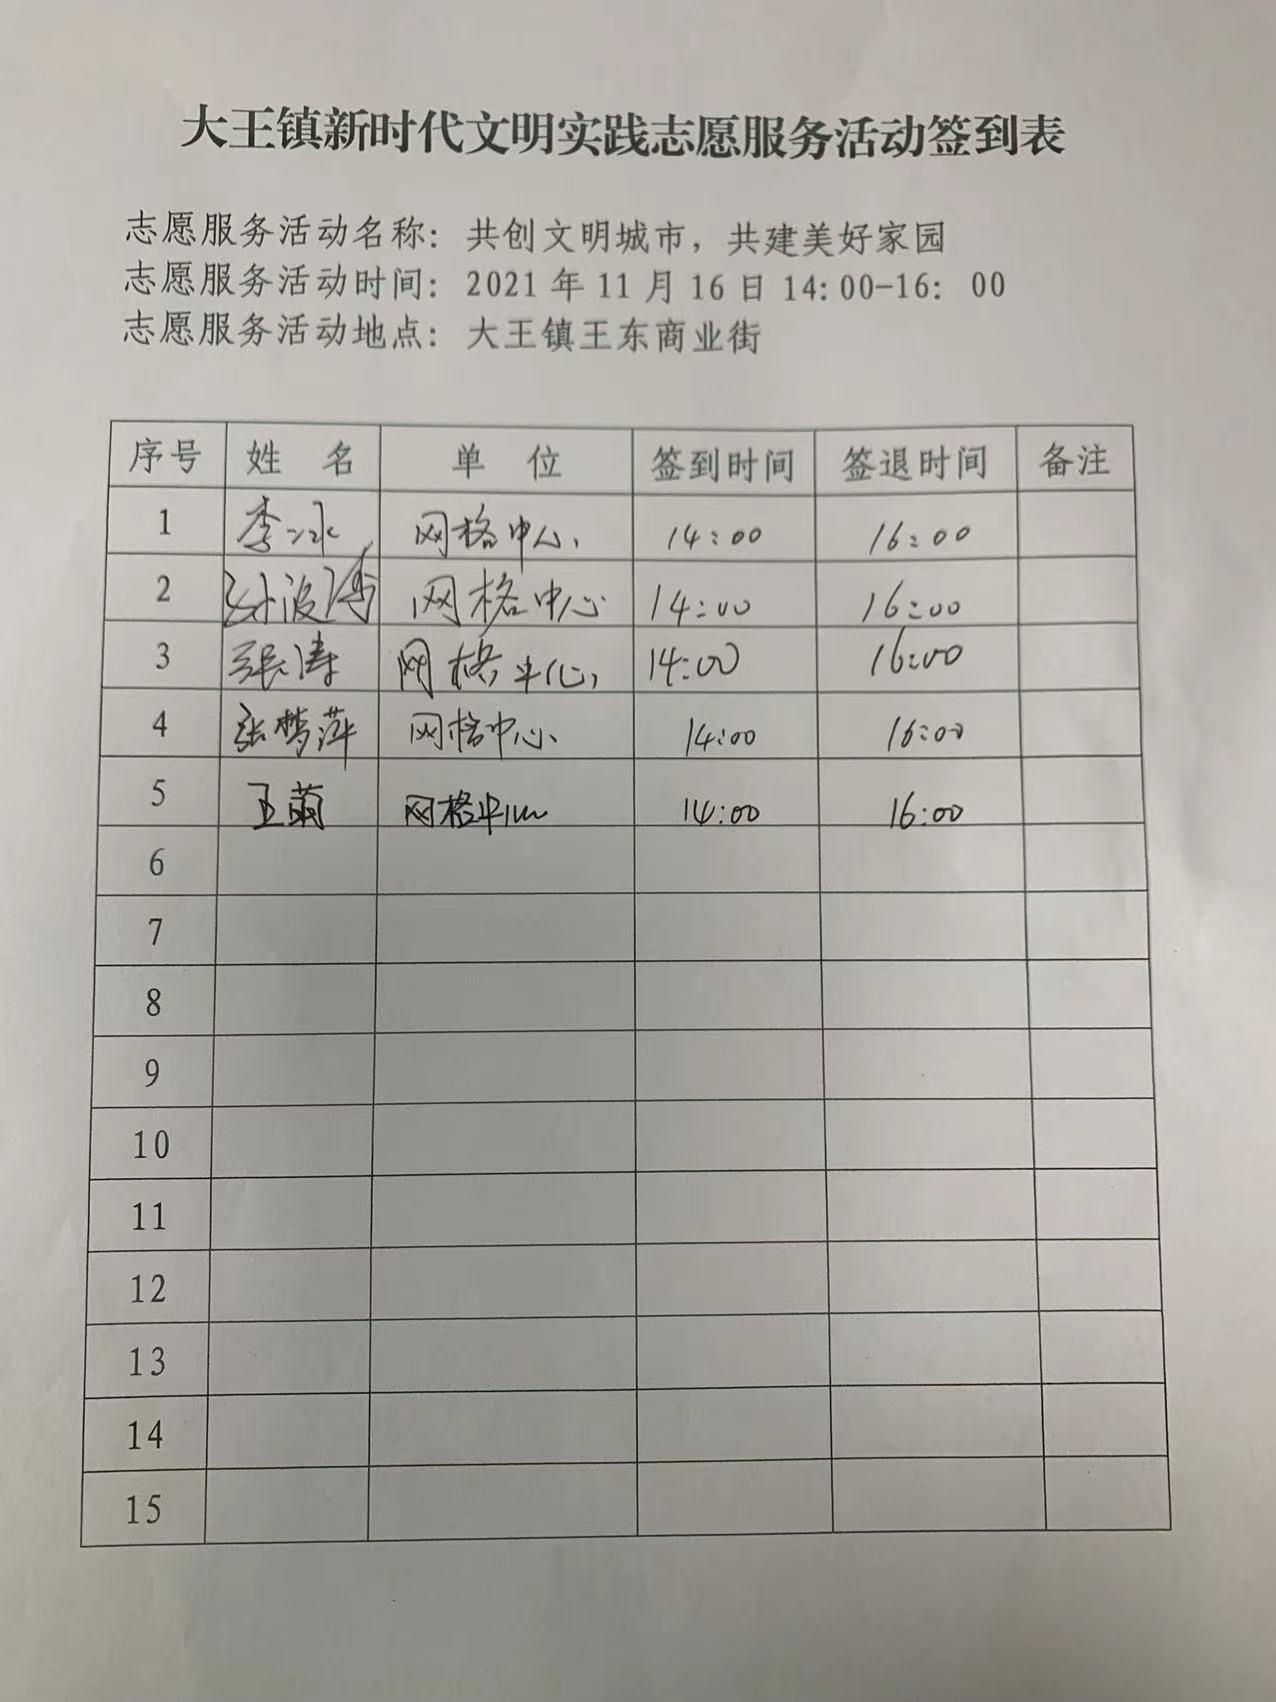 大王镇新时代文明实践志愿服务活动签到表
志愿服务活动名称：共创文明城市，共建美好家园
志愿服务活动时间：2021 年 11 月 16 日 14:00-16：00
志愿服务活动地点：大王镇王东商业街
序号 姓 名 单 位 签到时间 签退时间 备注
1 李冰 网格中心 14:00 16:00
2 网格中心 14:00 16:00
3 张涛 网格中心 14:00 16:00
4 张梦萍 网格中心 14:00 16:00
5 王 网格中心 14:00 16:00
6
7
8
9
10
11
12
13
14
15